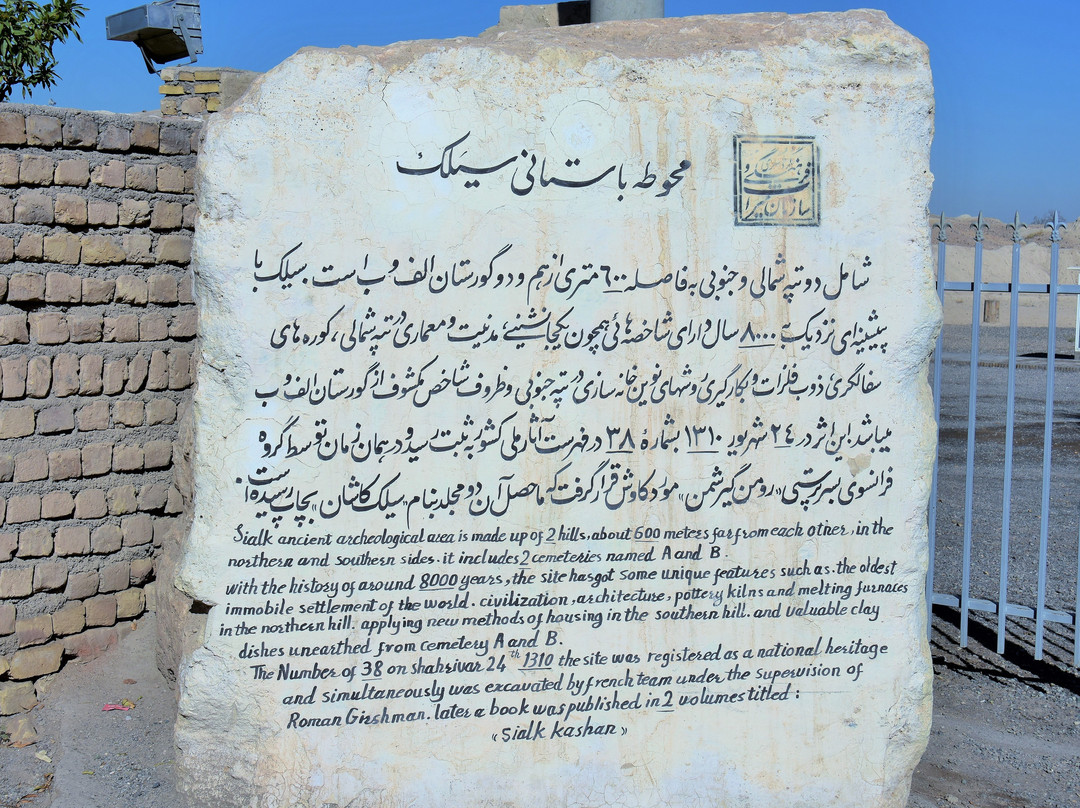 محوطه باستانی سیلک
سازمان میراث
فرهنگی
شامل دو تپه شمالی و جنوبی به فاصله ٦٠٠ متری از هم و دو گورستان الف و ب است. سیلک با
پیشینه‌ای نزدیک به ٨٠٠٠ سال دارای شاخصه‌هائی همچون یکجانشینی مدنیت و معماری در تپه شمالی، کوره های
سفالگری ذوب فلزات و بکارگیری روشهای نوین خانه سازی در تپه جنوبی و ظروف شاخص مکشوف از گورستان الف و ب
میباشد. این اثر در ٢٤ شهریور ١٣١٠ بشماره ٣٨ در فهرست آثار ملی کشور به ثبت رسید و در همان زمان توسط گروه
فرانسوی بسرپرستی «رومن گیرشمن» مورد کاوش قرار گرفت که ماحصل آن دو مجلد بنام «سیلک کاشان» بچاپ رسیده است.
Sialk ancient archeological area is made up of 2 hills, about 600 meters far from each other, in the
northern and southern sides. it includes 2 cemeteries named A and B.
with the history of around 8000 years, the site hasgot some unique features such as. the oldest
immobile settlement of the world. civilization, architecture, pottery kilns and melting furnaces
in the northern hill. applying new methods of housing in the southern hill. and valuable clay
dishes unearthed from cemetery A and B.
The Number of 38 on shahrivar 24th 1310 the site was registered as a national heritage
and simultaneously was excavated by french team under the supervision of
Roman Girshman. later a book was published in 2 volumes titled:
«Sialk kashan»